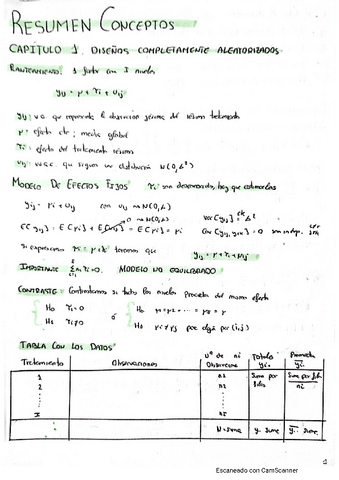 RESUMEN CONCEPTOS
CAPÍTULO 1. DISEÑOS COMPLETAMENTE ALEATORIZADOS.
PLANTEAMIENTO: 1 factor con I niveles
yij = μ + τi + uij
yij: v.a. que representa la observación j-ésima del i-ésimo tratamiento
μ: efecto cte; media global
τi: efecto del tratamiento i-ésimo
uij: v.a.e.c. que siguen una distribución N(0, σ²)
MODELO DE EFECTOS FIJOS τi son desconocidos, hay que estimarlos
yij = μi + uij con uij ~ N(0, σ²)
E[yij] = E[μi] + E[uij] = E[μi] = μi
Si expresamos μi = μ + τi tenemos que yij = μ + τi + uij
IMPORTANTE MODELO NO EQUILIBRADO
CONTRASTE: Contrastamos si todos los niveles producen el mismo efecto
H₀ τi = 0 ó H₀ μ1 = μ2 = ... = μI = μ
H₁ τi ≠ 0 H₁ μi ≠ μj para algún (i, j)
TABLA CON LOS DATOS
Tratamiento Observaciones Nº de ni Observaciones Totales yi. Promedio ȳi.
1 n1 Suma por filas Suma por filas / ni
2 n2
I nI
N = suma y.. suma ȳ.. suma
1
Escaneado con CamScanner